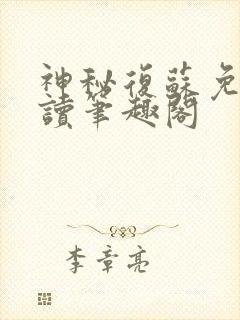 神秘復蘇免
讀筆趣閣
李章亮